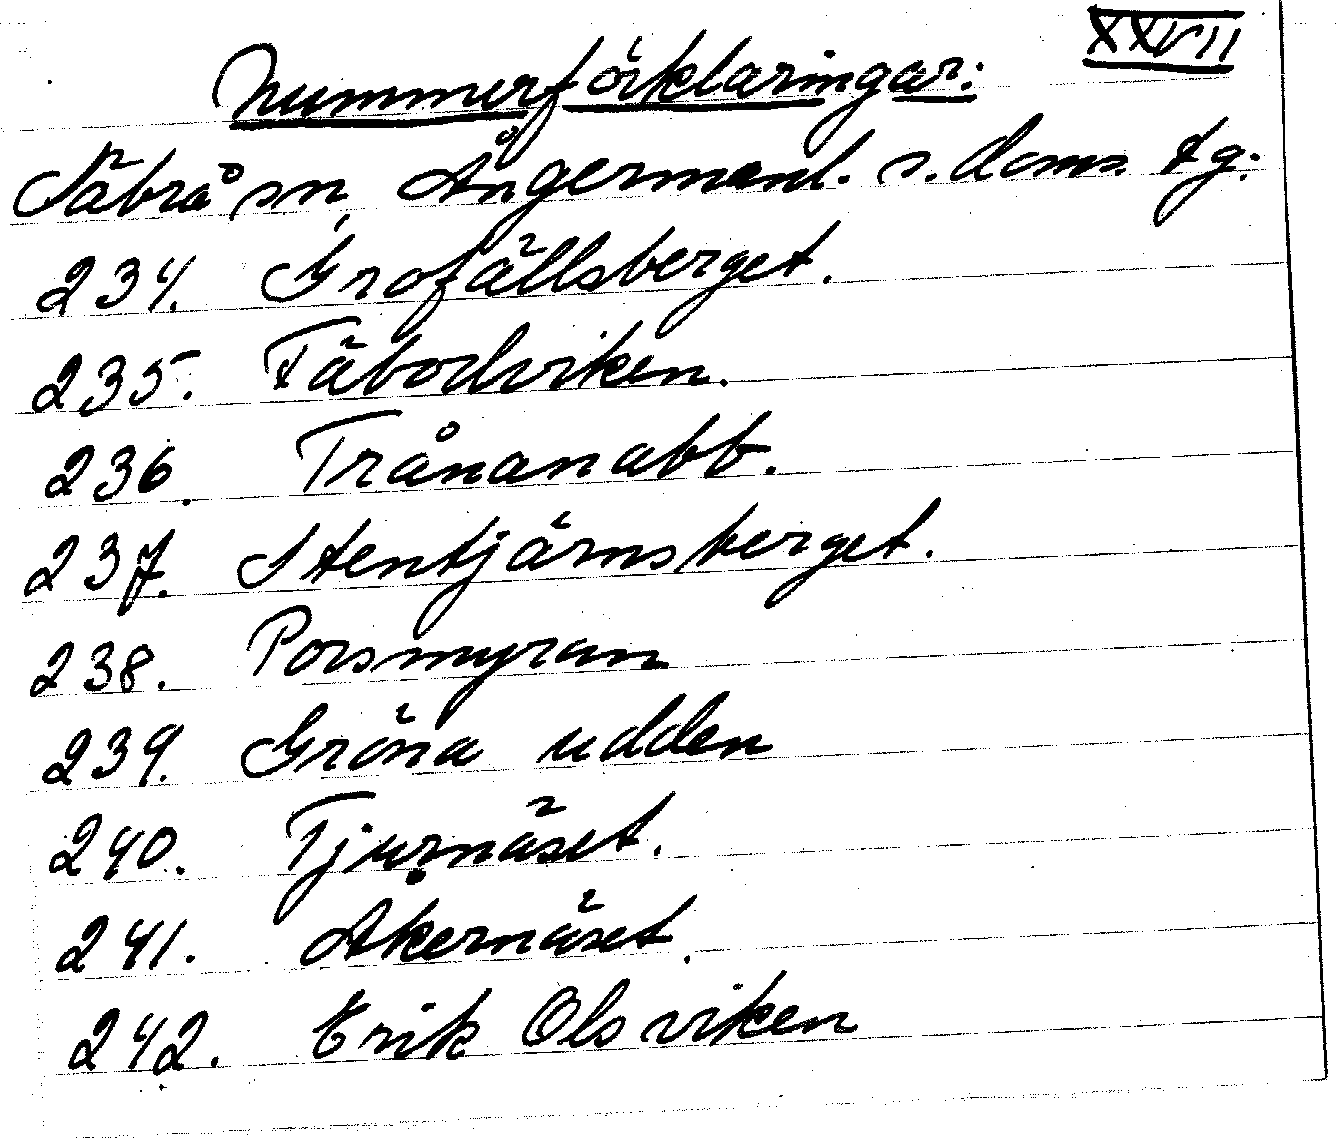 XXVII
Nummerförklaringar:
Säbrå sn, Ångermanl. s. doms. tg:
234. Grofällsberget.
235. Fäbodviken.
236. Trånanabb.
237. Stentjärnsberget.
238. Porsmyran
239. Gröna udden
240. Tjurnäset.
241. Åkernäset.
242. Erik Olsviken